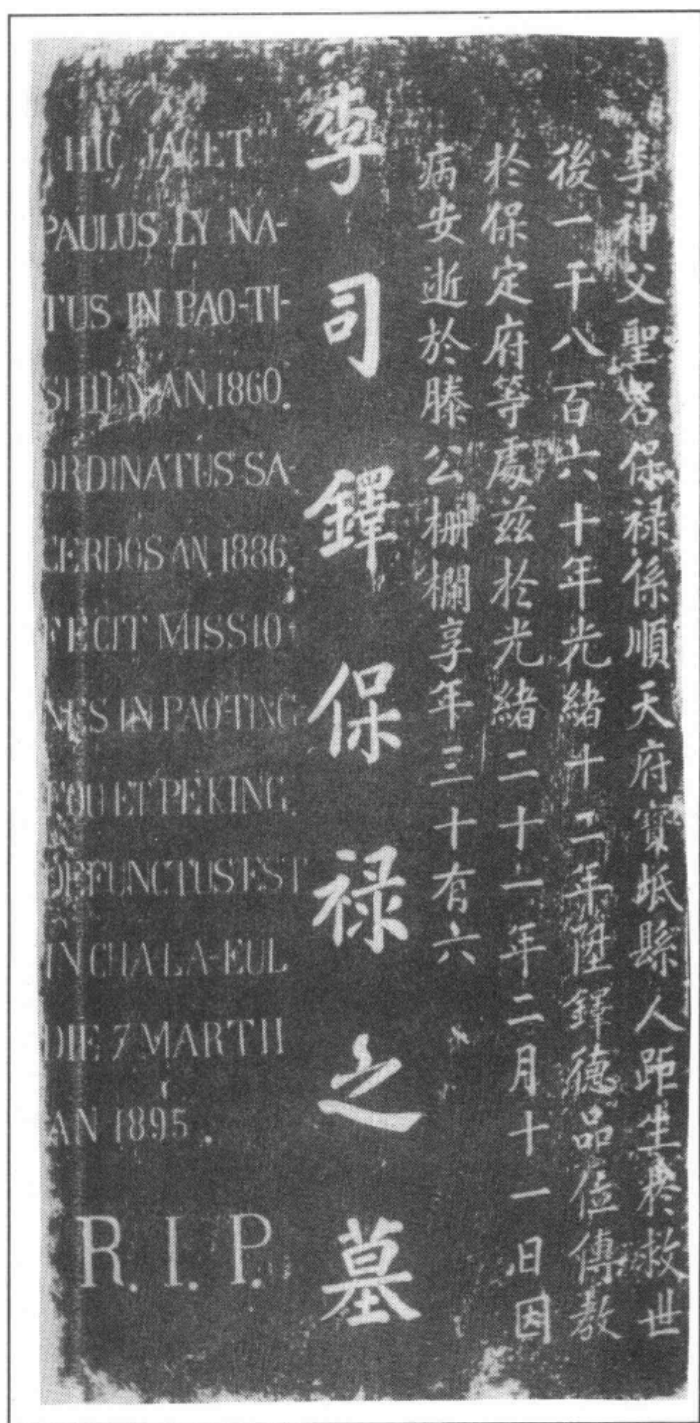 李神父聖名保禄係順天府寶坻縣人距生於救世
後一千八百六十年光緒十二年陞鐸德品位傳教
於保定府等處兹於光緒二十一年二月十一日因
病安逝於滕公栅欄享年三十有六
李司鐸保禄之墓
HIC JACET
PAULUS LY NA-
TUS IN PAO-TI-
SHIEN AN.1860.
ORDINATUS SA-
CERDOS AN 1886.
FECIT MISSIO-
NES IN PAO-TING
FOU ET PEKING.
DEFUNCTUS EST
IN CHA-LA-EUL
DIE 7 MARTII
AN 1895.
R.I.P.